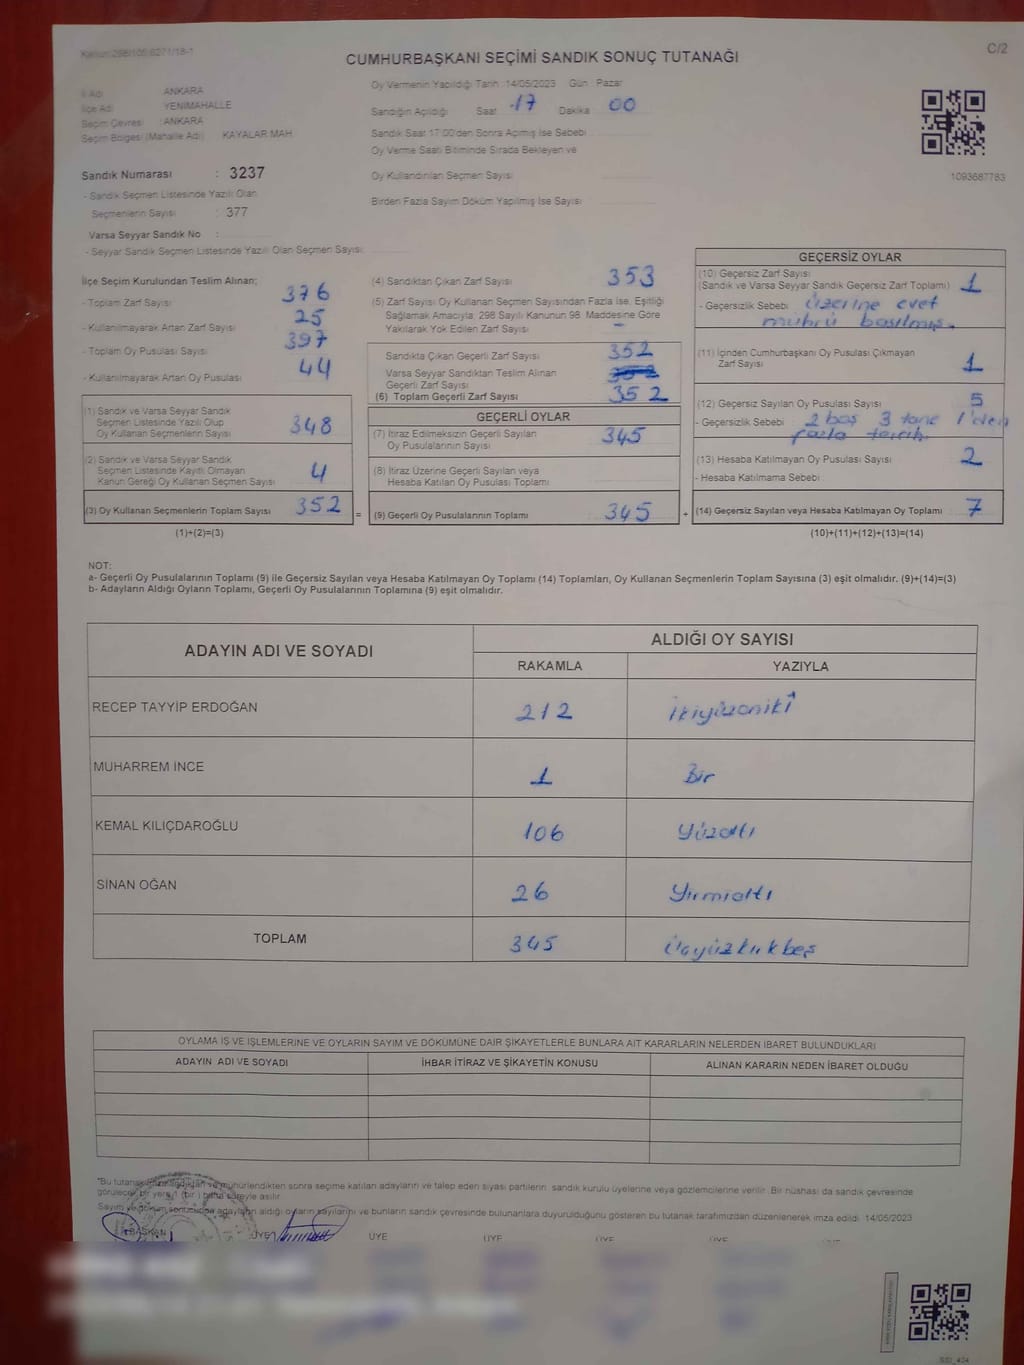 Kanun:298/105,6271/18-1
C/2
CUMHURBAŞKANI SEÇİMİ SANDIK SONUÇ TUTANAĞI
İl Adı ANKARA
İlçe Adı YENİMAHALLE
Seçim Çevresi : ANKARA
Seçim Bölgesi (Mahalle Adı) KAYALAR MAH
Sandık Numarası : 3237
- Sandık Seçmen Listesinde Yazılı Olan
Seçmenlerin Sayısı : 377
Varsa Seyyar Sandık No :
- Seyyar Sandık Seçmen Listesinde Yazılı Olan Seçmen Sayısı:
Oy Vermenin Yapıldığı Tarih :14/05/2023 Gün : Pazar
Sandığın Açıldığı Saat 17 Dakika 00
Sandık Saat 17:00'den Sonra Açılmış İse Sebebi
Oy Verme Saati Bitiminde Sırada Bekleyen ve
Oy Kullandırılan Seçmen Sayısı
Birden Fazla Sayım Döküm Yapılmış İse Sayısı
1093687783
İlçe Seçim Kurulundan Teslim Alınan;
- Toplam Zarf Sayısı 376
- Kullanılmayarak Artan Zarf Sayısı 25
- Toplam Oy Pusulası Sayısı 397
- Kullanılmayarak Artan Oy Pusulası 44
(1) Sandık ve Varsa Seyyar Sandık
Seçmen Listesinde Yazılı Olup
Oy Kullanan Seçmenlerin Sayısı 348
(2) Sandık ve Varsa Seyyar Sandık
Seçmen Listesinde Kayıtlı Olmayan
Kanun Gereği Oy Kullanan Seçmen Sayısı 4
(3) Oy Kullanan Seçmenlerin Toplam Sayısı 352 =
(1)+(2)=(3)
(4) Sandıktan Çıkan Zarf Sayısı 353
(5) Zarf Sayısı Oy Kullanan Seçmen Sayısından Fazla İse, Eşitliği
Sağlamak Amacıyla, 298 Sayılı Kanunun 98. Maddesine Göre
Yakılarak Yok Edilen Zarf Sayısı -
Sandıkta Çıkan Geçerli Zarf Sayısı 352
Varsa Seyyar Sandıktan Teslim Alınan
Geçerli Zarf Sayısı
(6) Toplam Geçerli Zarf Sayısı 352
GEÇERLİ OYLAR
(7) İtiraz Edilmeksizin Geçerli Sayılan
Oy Pusulasının Sayısı 345
(8) İtiraz Üzerine Geçerli Sayılan veya
Hesaba Katılan Oy Pusulası Toplamı
(9) Geçerli Oy Pusulalarının Toplamı 345 +
GEÇERSİZ OYLAR
(10) Geçersiz Zarf Sayısı
(Sandık ve Varsa Seyyar Sandık Geçersiz Zarf Toplamı) 1
- Geçersizlik Sebebi üzerine evet
mührü basılmış.
(11) İçinden Cumhurbaşkanı Oy Pusulası Çıkmayan
Zarf Sayısı 1
(12) Geçersiz Sayılan Oy Pusulası Sayısı 5
- Geçersizlik Sebebi 2 boş 3 tane 1'den
fazla tercih.
(13) Hesaba Katılmayan Oy Pusulası Sayısı 2
- Hesaba Katılmama Sebebi
(14) Geçersiz Sayılan veya Hesaba Katılmayan Oy Toplamı 7
(10)+(11)+(12)+(13)=(14)
NOT:
a- Geçerli Oy Pusulalarının Toplamı (9) ile Geçersiz Sayılan veya Hesaba Katılmayan Oy Toplamı (14) Toplamları, Oy Kullanan Seçmenlerin Toplam Sayısına (3) eşit olmalıdır. (9)+(14)=(3)
b- Adayların Aldığı Oyların Toplamı, Geçerli Oy Pusulalarının Toplamına (9) eşit olmalıdır.
ADAYIN ADI VE SOYADI ALDIĞI OY SAYISI
RAKAMLA YAZIYLA
RECEP TAYYİP ERDOĞAN 212 İkiyüzoniki
MUHARREM İNCE 1 Bir
KEMAL KILIÇDAROĞLU 106 Yüzaltı
SİNAN OĞAN 26 Yirmialtı
TOPLAM 345 Üçyüzkırkbeş
OYLAMA İŞ VE İŞLEMLERİNE VE OYLARIN SAYIM VE DÖKÜMÜNE DAİR ŞİKAYETLERLE BUNLARA AİT KARARLARIN NELERDEN İBARET BULUNDUKLARI
ADAYIN ADI VE SOYADI İHBAR İTİRAZ VE ŞİKAYETİN KONUSU ALINAN KARARIN NEDEN İBARET OLDUĞU
"Bu tutanak imzalandıktan ve mühürlendikten sonra seçime katılan adayların ve talep eden siyasi partilerin sandık kurulu üyelerine veya gözlemcilerine verilir. Bir nüshası da sandık çevresinde
görülecek bir yere 1 (bir) hafta süreyle asılır.
Sayım ve döküm sonucunda adayların aldığı oyların sayılarını ve bunların sandık çevresinde bulunanlara duyurulduğunu gösteren bu tutanak tarafımızdan düzenlenerek imza edildi. 14/05/2023
BAŞKAN ÜYE ÜYE ÜYE ÜYE ÜYE